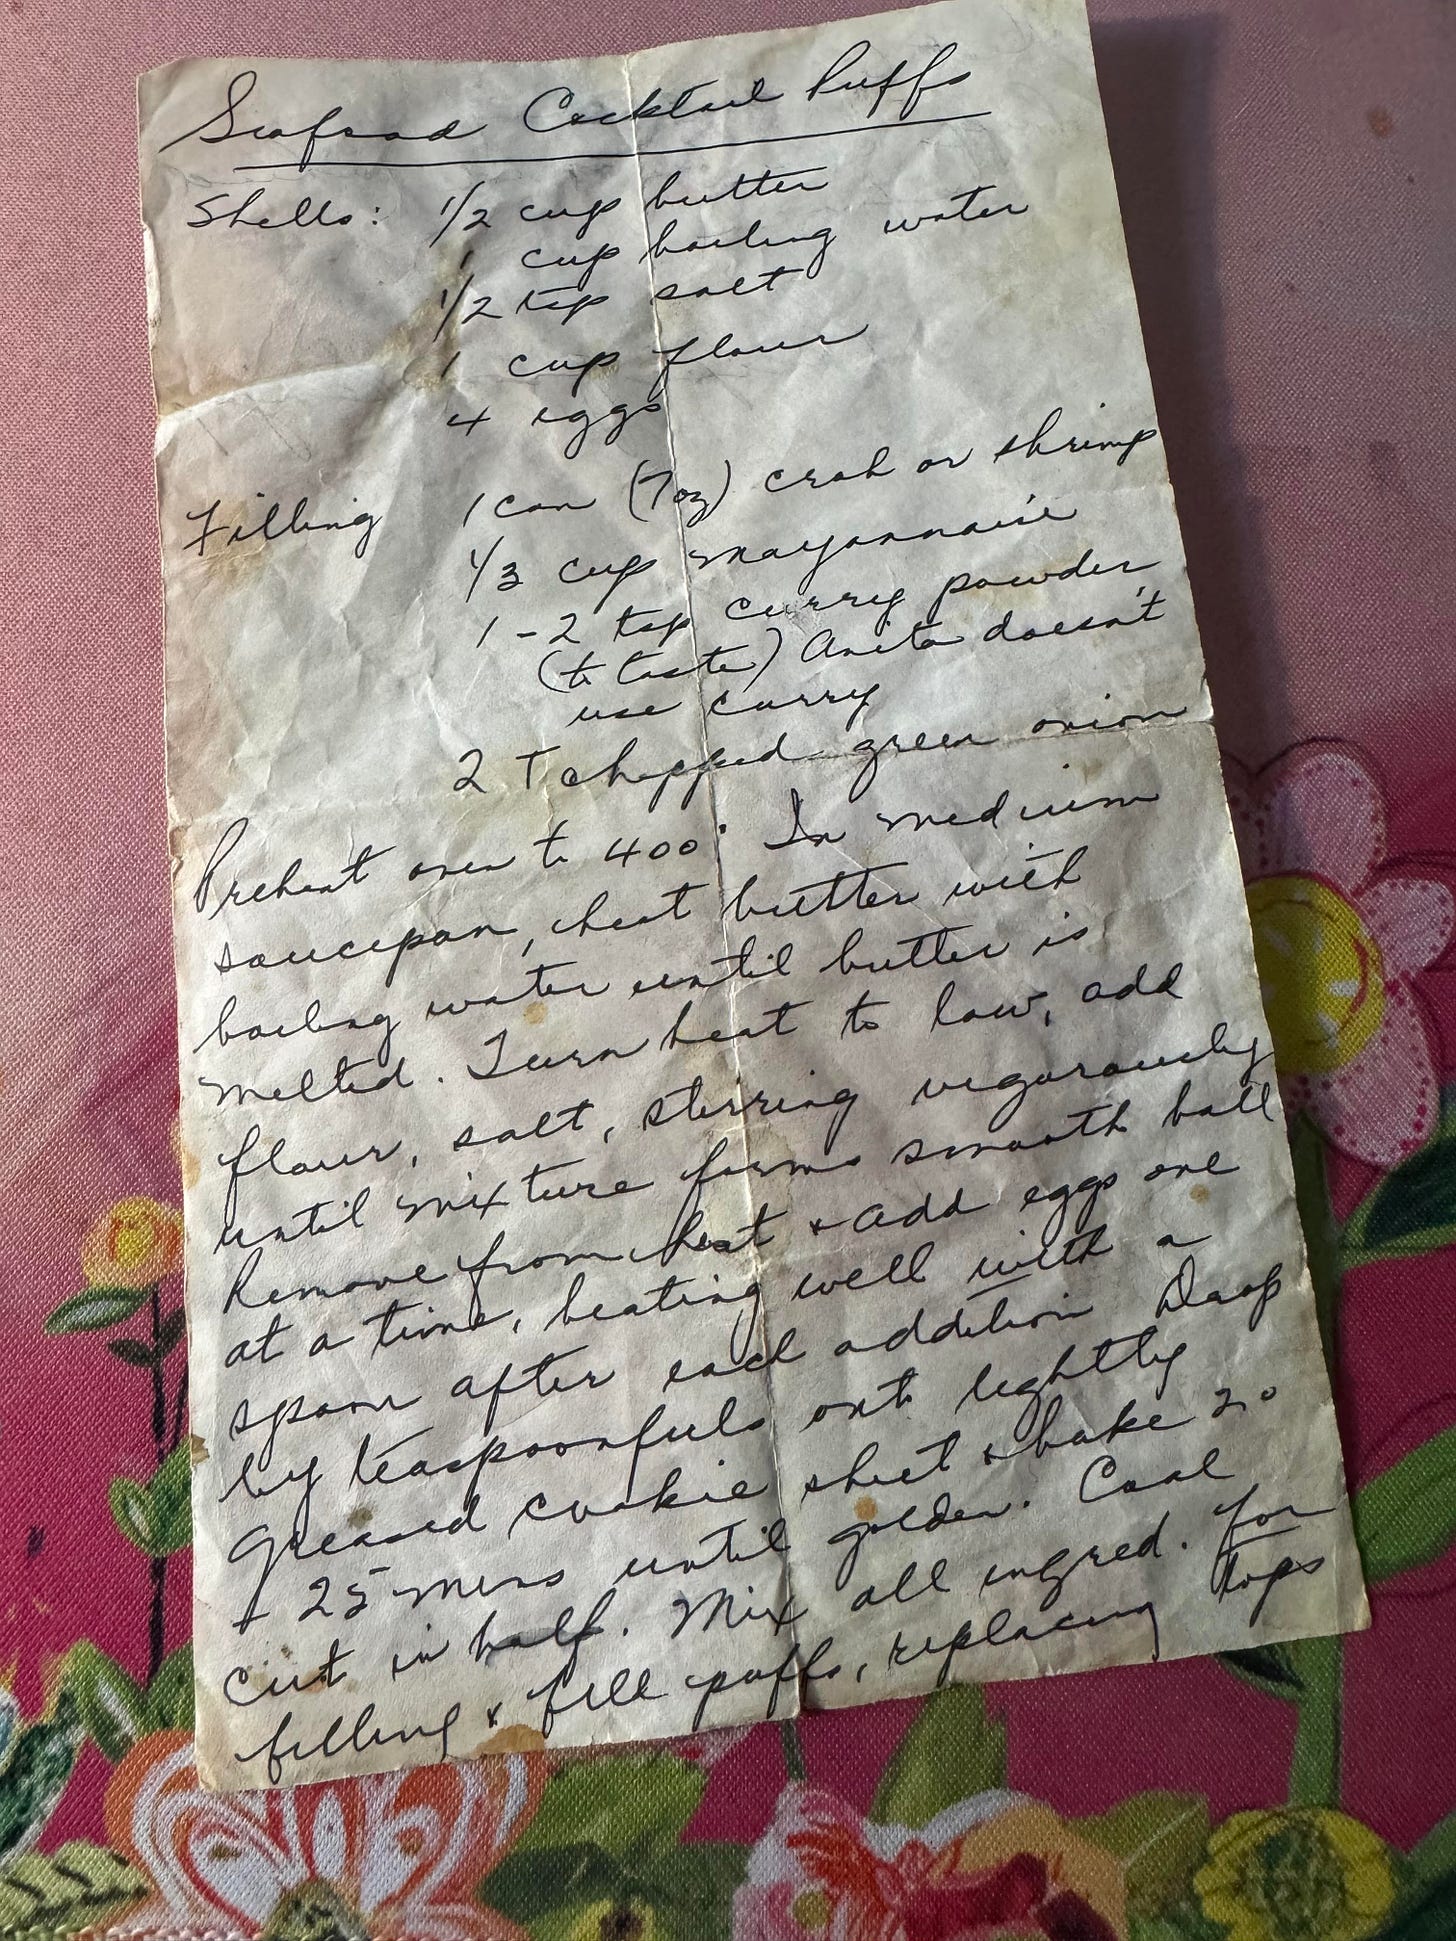 Seafood Cocktail Puffs
Shells: 1/2 cup butter
1 cup boiling water
1/2 tsp salt
1 cup flour
4 eggs
Filling 1 can (7 oz) crab or shrimp
1/3 cup mayonnaise
1-2 tsp curry powder
(to taste) Anita doesn't
use curry
2 T chopped green onion
Preheat oven to 400° In medium
saucepan, heat butter with
boiling water until butter is
melted. Turn heat to low, add
flour, salt, stirring vigorously
until mixture forms smooth ball
Remove from heat + add eggs one
at a time, beating well with a
spoon after each addition Drop
by teaspoonfuls ont lightly
greased cookie sheet + bake 20
+ 25 mins until golden. Cool
cut in half. Mix all ingred. for
filling + fill puffs, replacing tops